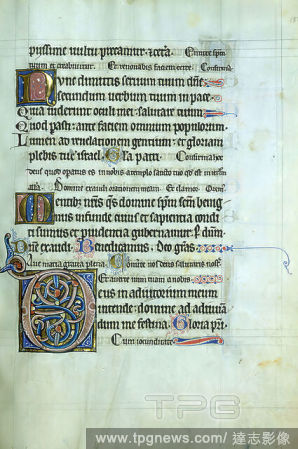 piissime vultu precamur. et cetera. Emitte spm
tuum et creabuntur. Et renovabis faciem terre. Confirma
Nunc dimittis servum tuum dñe:
secundum verbum tuum in pace.
Quia viderunt oculi mei: salutare tuum.
Quod parasti: ante faciem omnium populorum.
Lumen ad revelationem gentium: et gloriam
plebis tue israel. Gla patri. Confirma hoc
deus quod operatus es in nobis a templo sancto tuo qđ est in ierusa
Domine exaudi orationem meam. Et clamor. Orem
Mentibus nr̃is q̃s domine spm̃ scm̃ benig
nus infunde cuius et sapientia condi
ti sumus et providentia gubernamur. P. dñm
Dñe exaudi. Benedicamus. Deo gr̃as
Ave maria gratia plena. Converte nos deus salutaris nost
Et averte iram tuam a nobis
Deus in adiutorium meum
intende: domine ad adiuvan
dum me festina. Gloria pr̃i.
Cum iocunditate
TPG
www.tpgnews.com/達志影像